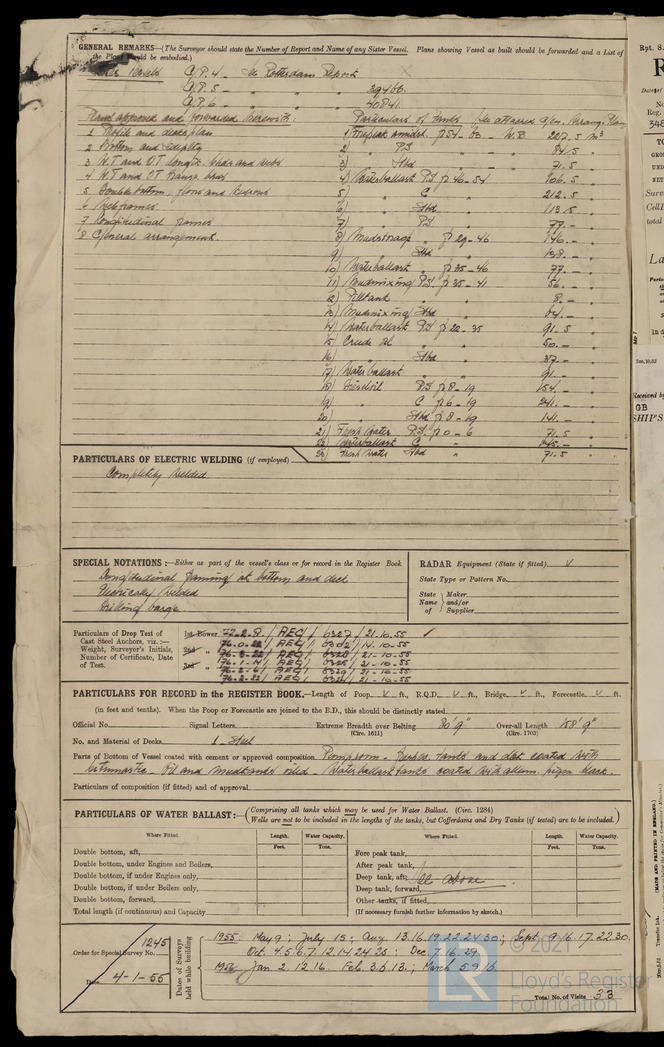 GENERAL REMARKS—(The Surveyor should state the Number of Report and Name of any Sister Vessel. Plans showing Vessel as built should be forwarded and a List of
the Plans should be embodied.)
G.P.4 - See Rotterdam Report
G.P.5 - " " 39466.
G.P.6 - " " 40841.
Plans approved and forwarded herewith:
1 Profile and decksplan
2 Bottom and
3 W.T and O.T longtl. bhds and webs
4 W.T and O.T transv. bhds
5 Double bottom, floors and
6 Webframes
7 Longitudinal frames
8 General arrangement.
Particulars of Tanks (See attached Gen. Arrang. Plan
1) Forepeak fr 54 - 63 - W.B. 207.5 m³
2) " P.S " 84.5 "
3) " Stbd " 71.5 "
4) Waterballast P.S fr 46-54 106.5 "
5) " C " 212.5 "
6) " Stbd " 113.5 "
7) " P.S " 77.- "
8) Mudstorage fr 29-46 146.- "
9) " Stbd " 138.- "
10) Waterballast " fr 35-46 77.- "
11) Mudmixing P.S. fr 35-41 56.- "
12) Pilltank " 8.- "
13) Mudmixing Stbd " 64.- "
14) Waterballast P.S fr 20-35 91.5 "
15) Crude Oil " 50.- "
16) " Stbd " 37.- "
17) Waterballast " 91.- "
18) Fueloil P.S fr 8-19 154.- "
19) " C fr 6-19 241.- "
20) " Stbd fr 8-19 141.- "
21) Fresh Water P.S. fr 0-6 71.5 "
22) Waterballast C "
23) Fresh Water Stbd " 71.5 "
PARTICULARS OF ELECTRIC WELDING (if employed)
Completely welded
SPECIAL NOTATIONS:—Either as part of the vessel's class or for record in the Register Book
Longitudinal framing at bottom and deck
Electrically welded
Drilling barge.
RADAR Equipment (State if fitted) v
State Type or Pattern No.
State Name of } Maker and/or Supplier
Particulars of Drop Test of Cast Steel Anchors, viz.:— Weight, Surveyor's Initials, Number of Certificate, Date of Test.
1st Bower / AEC / 6327 / 21-10-55 ✓
2nd " 76.0.22 / AEC / 6302 / 14-10-55
/ AEC / / 21-10-55
3rd " 76.1.14 / AEC / / 21-10-55
/ AEC / / 21-10-55
76.2.22 / AEC / / 21-10-55
PARTICULARS FOR RECORD in the REGISTER BOOK.—Length of Poop v ft., R.Q.D. v ft., Bridge v ft., Forecastle v ft.
(in feet and tenths). When the Poop or Forecastle are joined to the B.D., this should be distinctly stated
Official No. Signal Letters Extreme Breadth over Belting (Circ. 1611) 80'9" Over-all Length (Circ. 1703) 158'9"
No. and Material of Decks 1 - Steel
Parts of Bottom of Vessel coated with cement or approved composition Pumproom - tanks and deck coated with
- Oil and mudtanks oiled - Waterballast tanks coated with black.
Particulars of composition (if fitted) and of approval
PARTICULARS OF WATER BALLAST:—(Comprising all tanks which may be used for Water Ballast. (Circ. 1284)
Wells are not to be included in the lengths of the tanks, but Cofferdams and Dry Tanks (if tested) are to be included.)
Where Fitted. Length. Water Capacity. Where Fitted. Length. Water Capacity.
Feet. Tons. Feet. Tons.
Double bottom, aft, Fore peak tank,
Double bottom, under Engines and Boilers, After peak tank,
Double bottom, if under Engines only, Deep tank, aft, See above
Double bottom, if under Boilers only, Deep tank, forward,
Double bottom, forward, Other tanks, if fitted,
Total length (if continuous) and Capacity (If necessary furnish further information by sketch.)
Order for Special Survey No. 1245
Date 4-1-55
Dates of Surveys held while building
1955: May 9; July 15; Aug. 13.16.19.22.24.30.; Sept. 9.16.17.22.30.
Oct. 4.5.6.7.12.14.24.25; Dec. 7.16.29.
1956: Jan. 2.12.16. Feb. 3.6.13.; March 5.9.16.
Total No. of Visits 33
© 2021
LR
Lloyd's Register
Foundation
Rpt. 8.
GB
SHIP'S